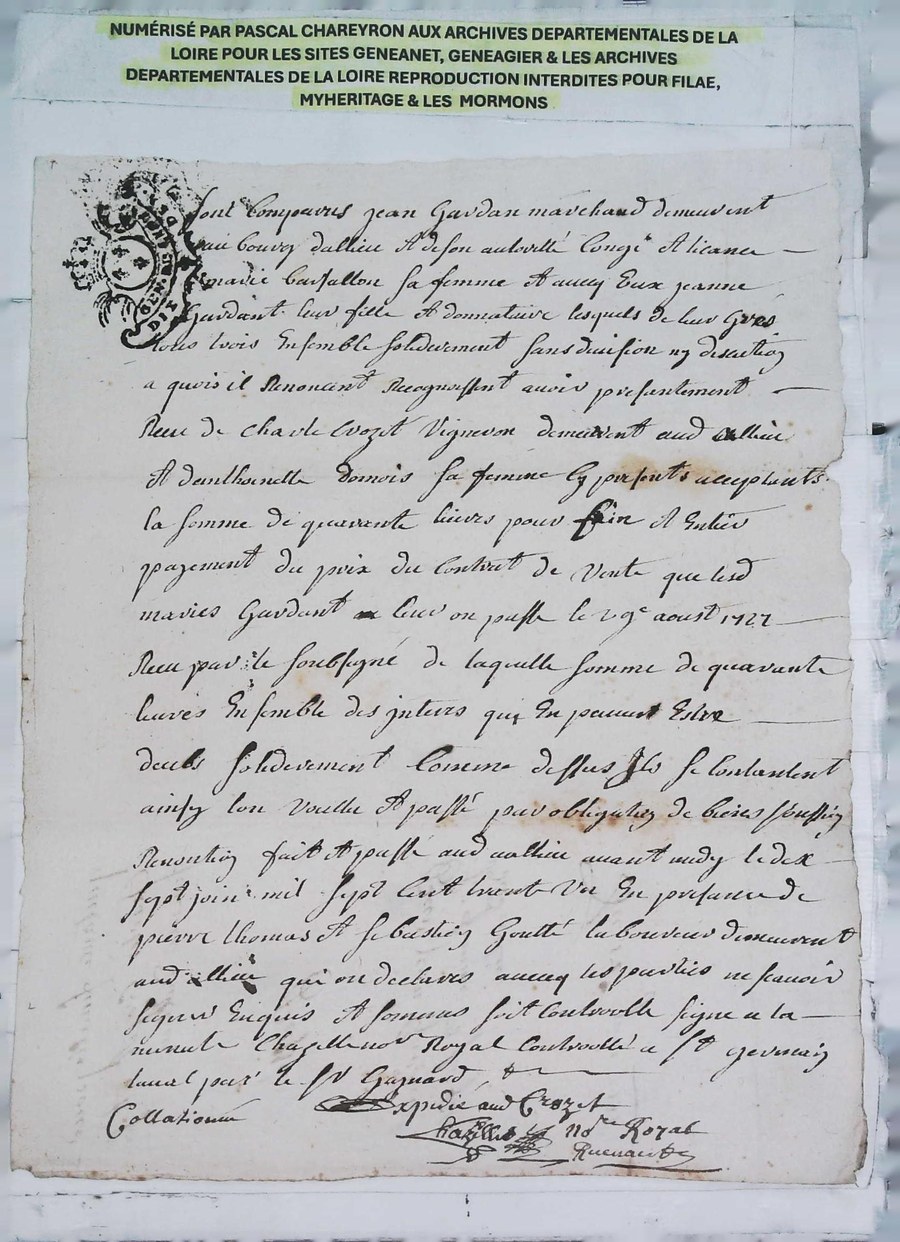 NUMÉRISÉ PAR PASCAL CHAREYRON AUX ARCHIVES DEPARTEMENTALES DE LA
LOIRE POUR LES SITES GENEANET, GENEAGIER & LES ARCHIVES
DEPARTEMENTALES DE LA LOIRE REPRODUCTION INTERDITES POUR FILAE,
MYHERITAGE & LES MORMONS
GEN DIX
sont Comparus jean Gardan marchand demeurent
au bourg dallieu & de son authorité Congé & licance
marie sa femme & avecq Eux jeanne
Gardant leur fille & donnataire lesquels de leur Grés
tous trois Ensemble soliderement sans division ny discution
a quois il Renoncent Recognoissent avoir presantement
Receu de Charle Crozet Vigneron demeurent aud allieu
& danthoinette domois sa femme Cy presents acceptants
la somme de quarante livres pour fin & Entier
payement du prix du Contrat de Vente que lesd
maries Gardant leur on passe le 29e aoust 1727
Receu par le soubsigné de laquelle somme de quarante
livres Ensemble des interes qui En peuvent Estre
deubs soliderement Comme dessus ils se Contantent
ainsy lon voullu & passé par obligation de biens
Renontion fait & passé aud allieu avant midy le dix
sept join mil sept Cent trente Un En presance de
pierre thomas & sebastien Goutte laboureur demeurent
aud allieu qui on declares avecq les parties ne scavoir
signer Enquis & sommes soit Controolle signe a la
minute Chazelle nore Royal Controollé a St germain
laval par le Sr Gaynard
Collationné Expedié aud Crozet
Chazelle nore Royal